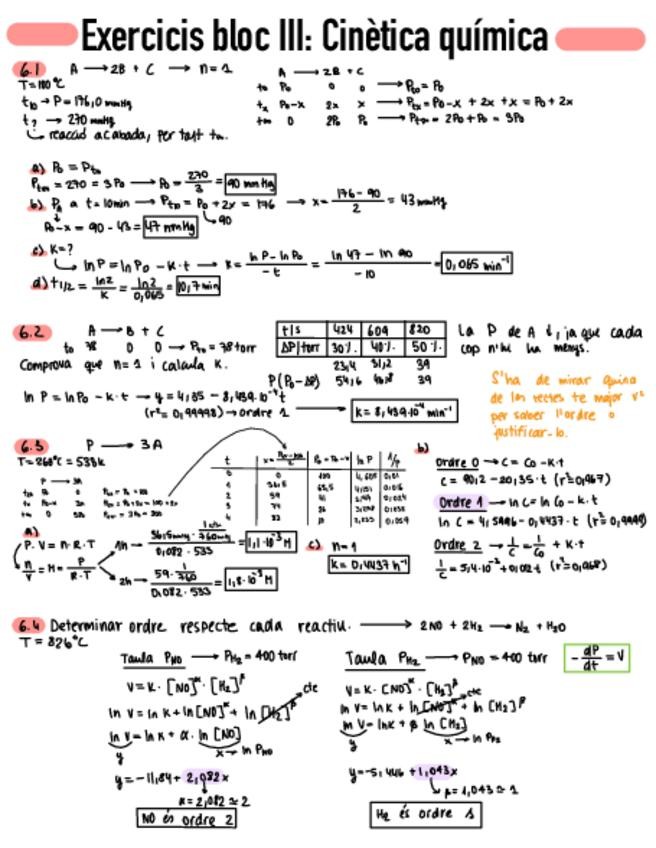 Exercicis bloc III: Cinètica química
6.1 A → 2B + C → n=1
T=100°C
t10 → P=176,0 mmHg
t? → 270 mmHg
↳ reacció acabada, per tant t∞.
A → 2B + C
t0 P0 0 0 → Pt0 = P0
tx P0-x 2x x → Ptx = P0-x + 2x + x = P0 + 2x
t∞ 0 2P0 P0 → Pt∞ = 2P0 + P0 = 3P0
a) P0 = Pt0
Pt∞ = 270 = 3P0 → P0 = 270/3 = 90 mmHg
b) PA a t=10min → Pt10 = P0 + 2x = 176 → x = (176-90)/2 = 43 mmHg
↳ 90
P0-x = 90-43 = 47 mmHg
c) K=?
↳ ln P = ln P0 - k·t → k = (ln P - ln P0)/-t = (ln 47 - ln 90)/-10 = 0,065 min⁻¹
d) t1/2 = ln2/k = ln2/0,065 = 10,7 min
6.2 A → B + C
t0 78 0 0 → Pt0 = 78 torr
Comprova que n=1 i calcula k.
t/s 424 604 820
ΔP/torr 30% 40% 50%
23,4 31,2 39
P(P0-ΔP) 54,6 46,8 39
La P de A ↓, ja que cada
cop n'hi ha menys.
ln P = ln P0 - k·t → y = 4,35 - 8,439·10⁻⁴t
(r²= 0,99998) → ordre 1 → k = 8,439·10⁻⁴ min⁻¹
S'ha de mirar quina
de les rectes te major r²
per saber l'ordre o
justificar-lo.
6.3 P → 3A
T=260°C = 533k
a)
P·V = n·R·T
n/V = M = P/R·T
1h →
0,082·533
= 1,1·10⁻³ M
2h → 59·1/760
0,082·533
= 1,8·10⁻³ M
c) n=1
k= 0,4437 h⁻¹
b)
Ordre 0 → C = C0 - k·t
C = 90,2 - 20,35·t (r²=0,967)
Ordre 1 → ln C = ln C0 - k·t
Ordre 2 → 1/C = 1/C0 + k·t
6.4 Determinar ordre respecte cada reactiu. → 2NO + 2H2 → N2 + H2O
T = 826°C
Taula PNO → PH2 = 400 torr
V = k·[NO]^α·[H2]^β
ln V = ln k + ln[NO]^α + ln [H2]^β cte
ln V = ln k + α·ln [NO]
y x → ln PNO
y = -11,84 + 2,082x
α = 2,082 ≃ 2
NO és ordre 2
Taula PH2 → PNO = 400 torr
-dP/dt = V
V = k·[NO]^α·[H2]^β
ln V = ln k + ln [NO]^α + ln [H2]^β cte
ln V = ln k + β ln [H2]
y x → ln PH2
y = -5,446 + 1,043x
↳ β = 1,043 ≃ 1
H2 és ordre 1